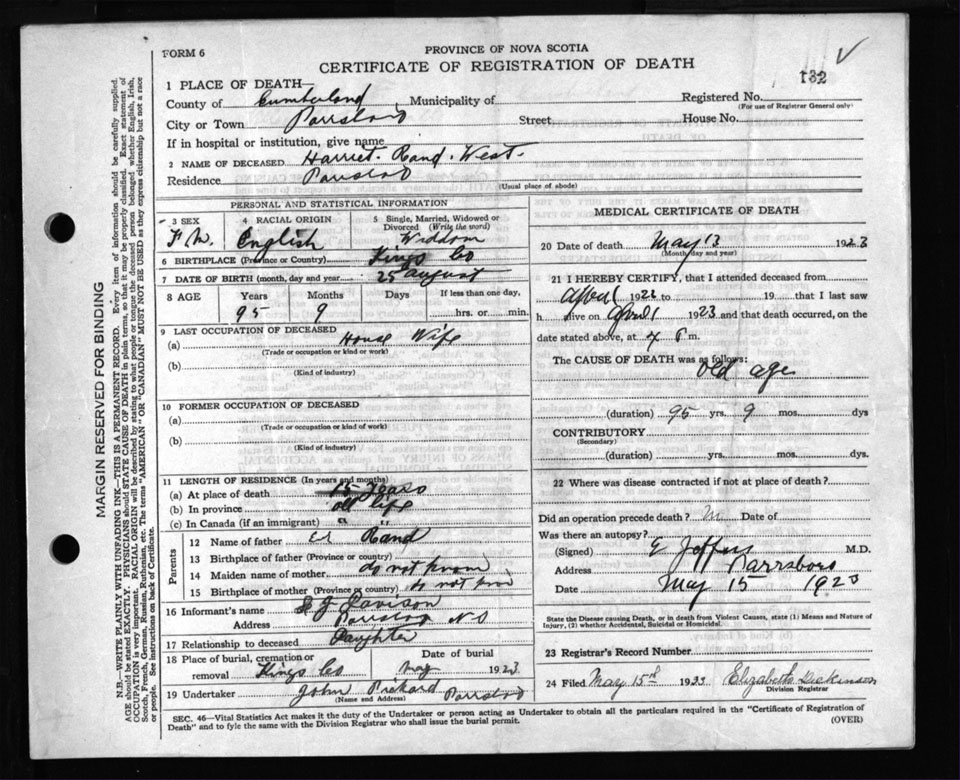 FORM 6
PROVINCE OF NOVA SCOTIA
CERTIFICATE OF REGISTRATION OF DEATH
132
1 PLACE OF DEATH—
County of Cumberland Municipality of
Registered No.
(For use of Registrar General only)
City or Town Parrsboro Street
House No.
If in hospital or institution, give name
2 NAME OF DECEASED Harriet Rand West
Residence Parrsboro
(Usual place of abode)
PERSONAL AND STATISTICAL INFORMATION
3 SEX
F
4 RACIAL ORIGIN
English
5 Single, Married, Widowed or Divorced (Write the word)
Widdow
6 BIRTHPLACE (Province or Country) Kings Co
7 DATE OF BIRTH (month, day and year) 25 august
8 AGE Years Months Days If less than one day,
95 9 hrs. or min.
9 LAST OCCUPATION OF DECEASED
(a) House Wife
(Trade or occupation or kind or work)
(b)
(Kind of industry)
10 FORMER OCCUPATION OF DECEASED
(a)
(Trade or occupation or kind of work)
(b)
(Kind of industry)
11 LENGTH OF RESIDENCE (In years and months)
(a) At place of death 15 years
(b) In province all life
(c) In Canada (if an immigrant)
Parents
12 Name of father Rand
13 Birthplace of father (Province or country) do not know
14 Maiden name of mother
15 Birthplace of mother (Province or country) do not
16 Informant's name Davison
Address Parrsboro N S
17 Relationship to deceased Daughter
18 Place of burial, cremation or removal Kings Co
Date of burial
May 1923
19 Undertaker John Pickard Parrsboro
(Name and Address)
MEDICAL CERTIFICATE OF DEATH
20 Date of death May 13 1923
(Month, day and year)
21 I HEREBY CERTIFY, that I attended deceased from
April 192 to 19 that I last saw
h alive on April 1 1923 and that death occurred, on
date stated above, at 7 P m.
The CAUSE OF DEATH was as follows:
old age
(duration) 95 yrs. 9 mos. dys
CONTRIBUTORY
(Secondary)
(duration) yrs. mos. dys.
22 Where was disease contracted if not at place of death?
Did an operation precede death? Date of
Was there an autopsy?
(Signed) E Jeffers M.D.
Address Parrsboro
Date May 15 1923
State the Disease causing Death, or in death from Violent Causes, state (1) Means and Nature of Injury, (2) whether Accidental, Suicidal or Homicidal.
23 Registrar's Record Number
24 Filed May 15th 1923 Elizabeth Dickinson
Division Registrar
SEC. 46—Vital Statistics Act makes it the duty of the Undertaker or person acting as Undertaker to obtain all the particulars required in the "Certificate of Registration of
Death" and to fyle the same with the Division Registrar who shall issue the burial permit.
(OVER)
MARGIN RESERVED FOR BINDING
N.B.—WRITE PLAINLY WITH UNFADING INK—THIS IS A PERMANENT RECORD. Every item of information should be carefully supplied.
AGE should be stated EXACTLY. PHYSICIANS should STATE CAUSE OF DEATH in plain terms, so that it may be properly classified. Exact statement of
OCCUPATION is very important. RACIAL ORIGIN will be described by stating to what people or tongue the deceased person belonged whether English, Irish,
Scotch, French, German, Russian, Ruthenian, etc. The terms "AMERICAN" OR "CANADIAN" MUST NOT BE USED as they express citizenship but not a race
or people. See instructions on back of Certificate.